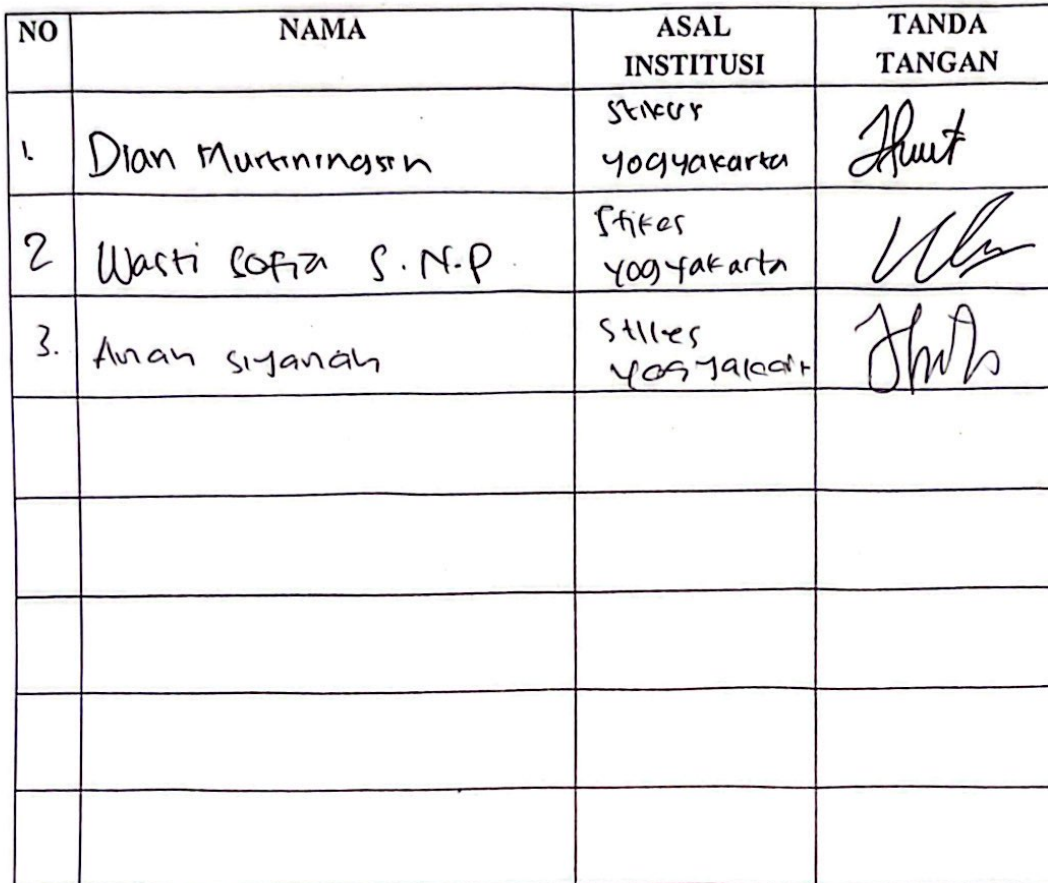 NO NAMA ASAL INSTITUSI TANDA TANGAN
1. Dian Murtiningsih Stikes yogyakarta
2 Wasti Sofia S.N.P. Stikes yogyakarta
3. siyanah Stikes